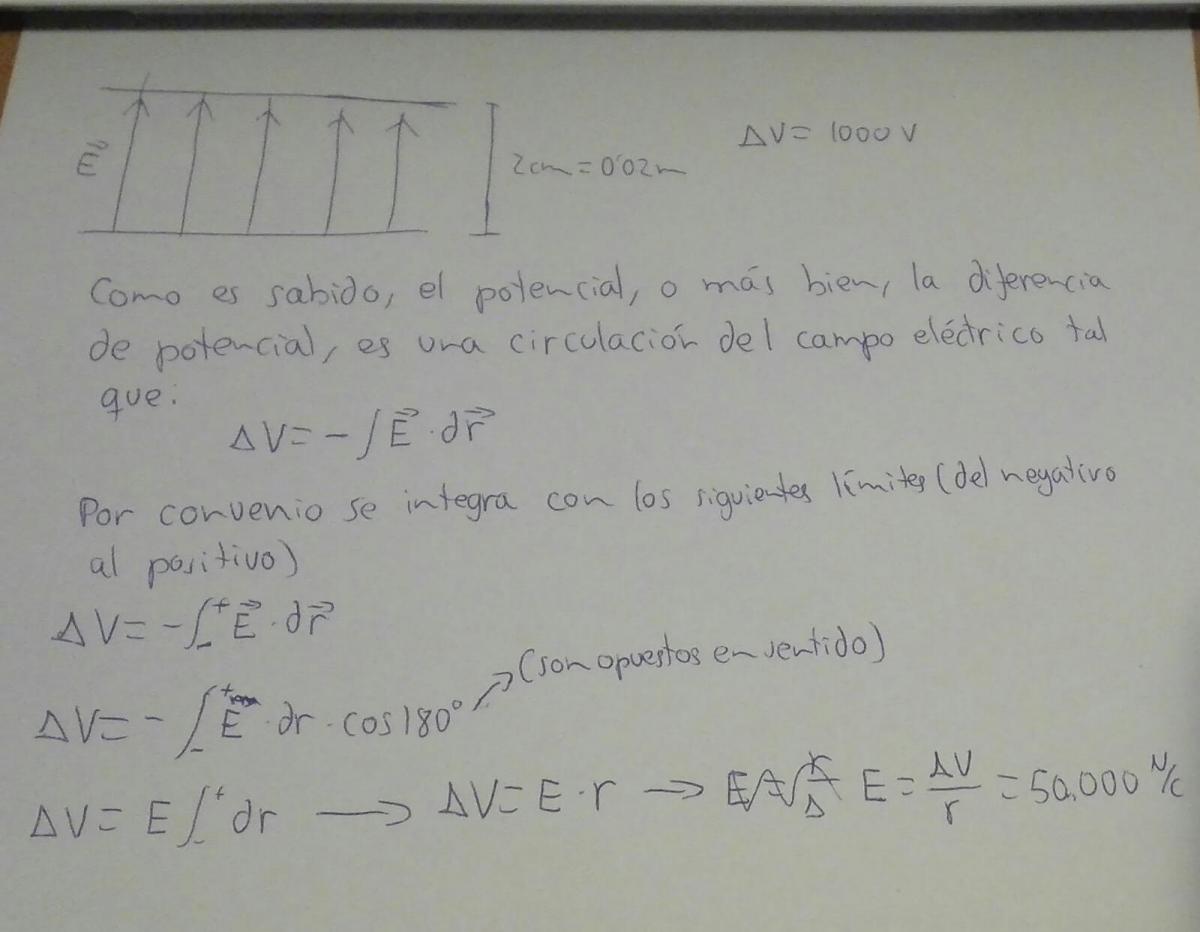 E⃗
2cm = 0'02m
ΔV = 1000 V
Como es sabido, el potencial, o más bien, la diferencia
de potencial, es una circulación del campo eléctrico tal
que:
ΔV = - ∫ E⃗ · dr⃗
Por convenio se integra con los siguientes límites (del negativo
al positivo)
ΔV = - ∫₋⁺ E⃗ · dr⃗
ΔV = - ∫₋⁺ E · dr · cos 180° → (son opuestos en sentido)
ΔV = E ∫₋⁺ dr → ΔV = E · r → E = ΔV/r = 50.000 N/C